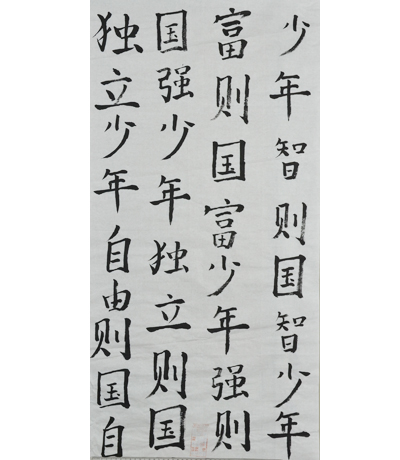 少年智则国智少年
富则国富少年强则
国强少年独立则国
独立少年自由则国自